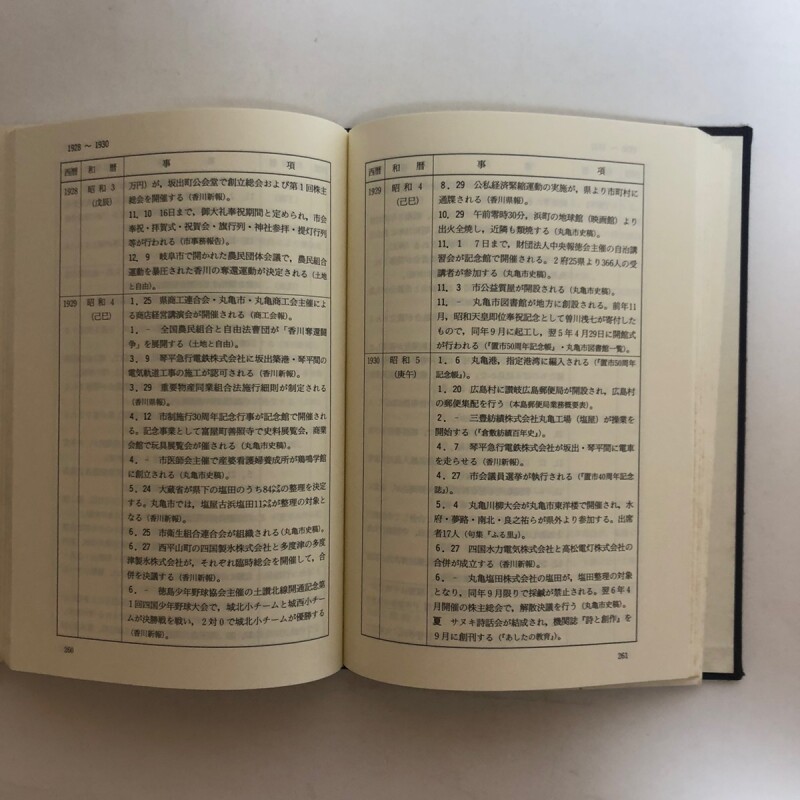 1928 ～ 1930
西暦 和暦 事 項
1928 昭和3 万円)が，坂出町公会堂で創立総会および第1回株主
(戊辰) 総会を開催する（香川新報）。
11. 10 16日まで，御大礼奉祝期間と定められ，市会
奉祝・拝賀式・祝賀会・旗行列・神社参拝・提灯行列
等が行われる（市事務報告）。
12. 9 岐阜市で開かれた農民団体会議で，農民組合
運動を暴圧された香川の奪還運動が決定される（土地
と自由）。
1929 昭和4 1. 25 県商工連合会・丸亀市・丸亀商工会主催によ
(己巳) る商店経営講演会が開催される（商工会報）。
1. － 全国農民組合と自由法曹団が「香川奪還闘
争」を展開する（土地と自由）。
3. 9 琴平急行電鉄株式会社に坂出築港・琴平間の
電気軌道工事の施工が認可される（香川新報）。
3. 29 重要物産同業組合法施行細則が制定される
（香川県報）。
4. 12 市制施行30周年記念行事が記念館で開催され
る。記念事業として富屋町善照寺で史料展覧会，商業
会館で玩具展覧会が催される（丸亀市史稿）。
4. － 市医師会主催で産婆看護婦養成所が鶴鳴学館
に創立される（丸亀市史稿）。
5. 24 大蔵省が県下の塩田のうち84㌶の整理を決定
する。丸亀市では，塩屋古浜塩田11㌶が整理の対象と
なる（香川新報）。
6. 25 市衛生組合連合会が組織される（丸亀市史稿）。
6. 27 西平山町の四国製氷株式会社と多度津の多度
津製氷株式会社が，それぞれ臨時総会を開催して，合
併を決議する（香川新報）。
6. － 徳島少年野球協会主催の土讃北線開通記念第
1回四国少年野球大会で，城北小チームと城西小チー
ムが決勝戦を戦い，2対0で城北小チームが優勝する
（香川新報）。
260
西暦 和暦 事 項
1929 昭和4 8. 29 公私経済緊縮運動の実施が，県より市町村に
(己巳) 通牒される（香川県報）。
10. 29 午前零時30分，浜町の地球館（映画館）より
出火全焼し，近隣も類焼する（丸亀市史稿）。
11. 1 7日まで，財団法人中央報徳会主催の自治講
習会が記念館で開催される。2府25県より366人の受
講者が参加する（丸亀市史稿）。
11. 3 市公益質屋が創設される（丸亀市史稿）。
11. － 丸亀市図書館が地方に創設される。前年11
月，昭和天皇即位奉祝記念として曽川浅七が寄付した
もので，同年9月に起工し，翌5年4月29日に開館式
が行われる（『置市50周年記念帳』・丸亀市図書館一覧）。
1930 昭和5 1. 6 丸亀港，指定港湾に編入される（『置市50周年
(庚午) 記念帳』）。
1. 20 広島村に讃岐広島郵便局が開設され，広島村
の郵便集配を行う（本島郵便局業務概要表）。
2. － 三豊紡績株式会社丸亀工場（塩屋）が操業を
開始する（『倉敷紡績百年史』）。
4. 7 琴平急行電鉄株式会社が坂出・琴平間に電車
を走らせる（香川新報）。
4. 27 市会議員選挙が執行される（『置市40周年記念
誌』）。
5. 4 丸亀川柳大会が丸亀市東洋楼で開催され，水
府・夢路・南北・良之祐らが県外より参加する。出席
者17人（句集『ふる里』）。
6. 27 四国水力電気株式会社と高松電灯株式会社の
合併が成立する（香川新報）。
6. － 丸亀塩田株式会社の塩田が，塩田整理の対象
となり，同年9月限りで採鹹が禁止される。翌6年4
月開催の株主総会で，解散決議を行う（丸亀市史稿）。
夏 サヌキ詩話会が結成され，機関誌『詩と創作』を
9月に創刊する（『あしたの教育』）。
261